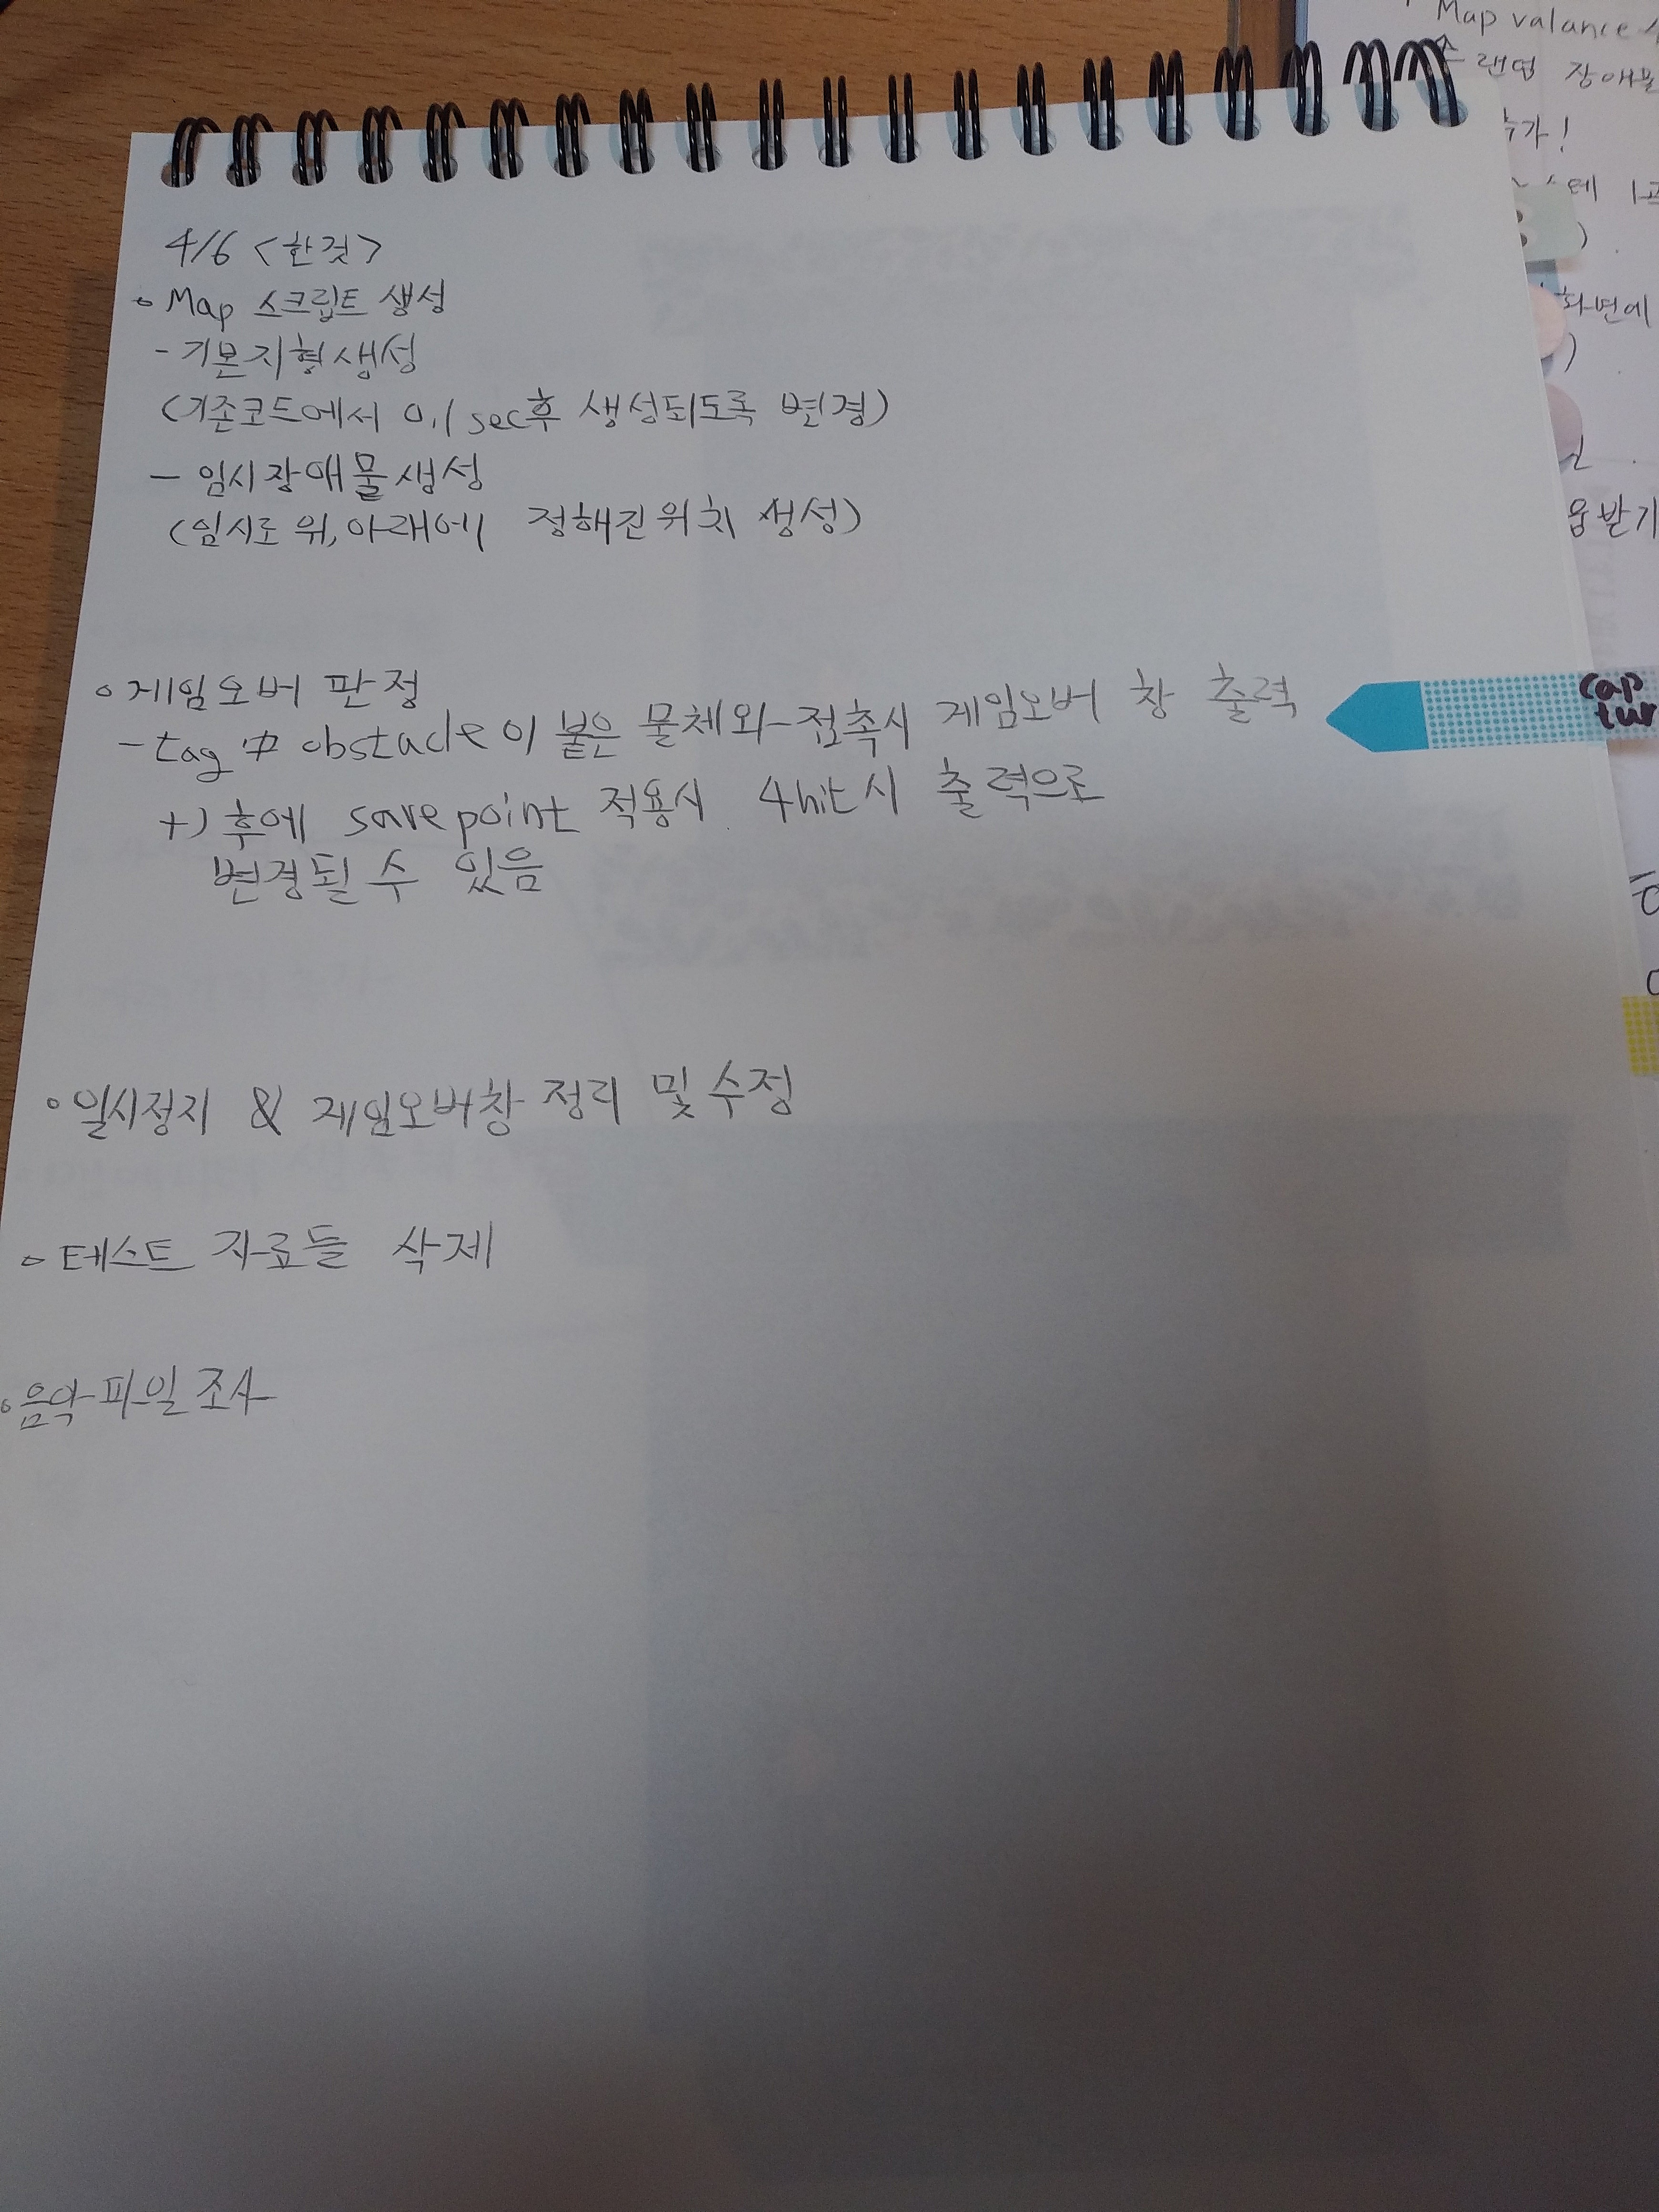 4/6 <한것>
◦ Map 스크립트 생성
- 기본지형생성
(기존코드에서 0.1sec후 생성되도록 변경)
- 임시장애물생성
(임시로 위, 아래에 정해진위치 생성)
◦ 게임오버 판정
- tag 中 obstacle이 붙은 물체와 접촉시 게임오버 창 출력
+) 후에 savepoint 적용시 4hit시 출력으로
변경될 수 있음
◦ 일시정지 & 게임오버창 정리 및 수정
◦ 테스트 자료들 삭제
◦ 음악파일조사
Map valance
랜덤 장애물
추가!
화면에
)
움받기
cap
tur